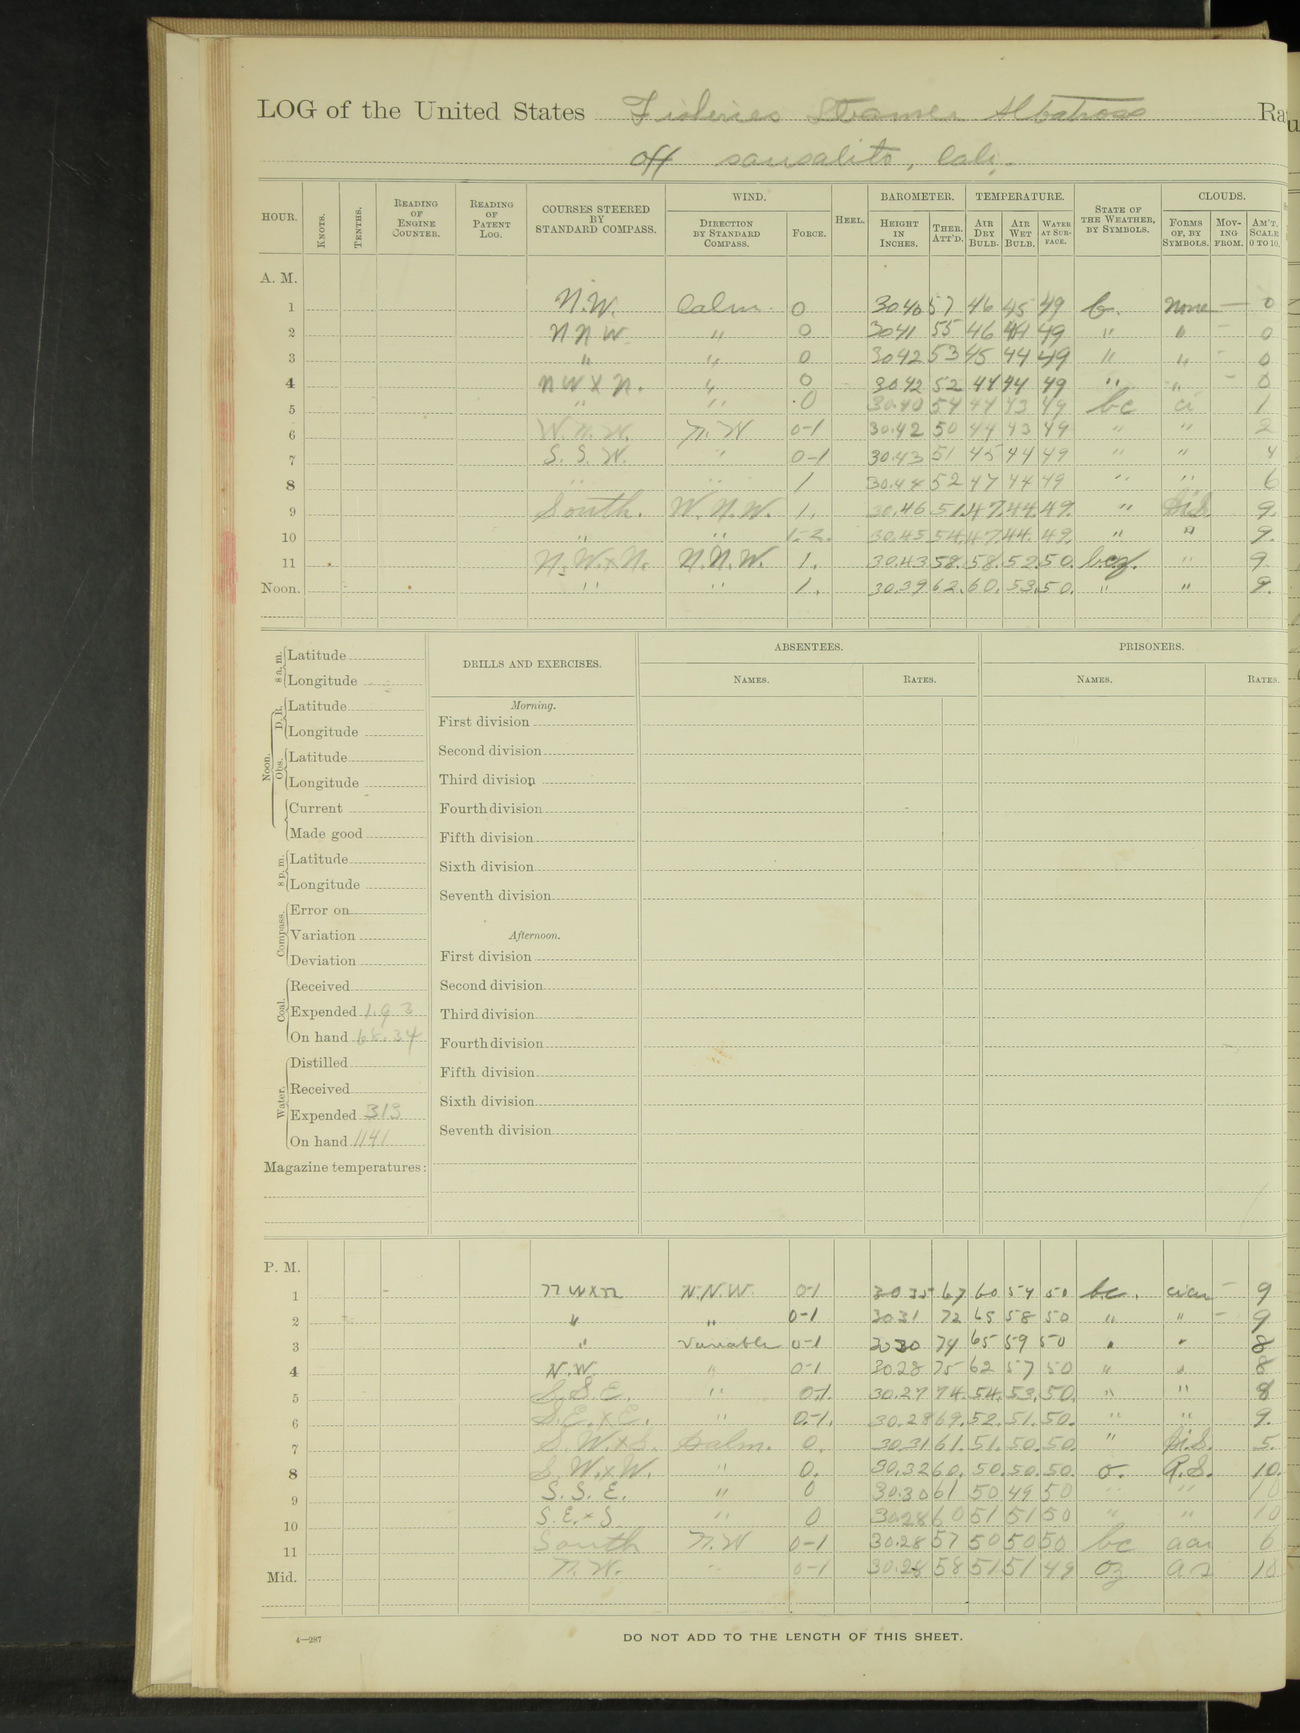 LOG of the United States Fisheries Steamer Albatross Ra
off Sausalito, Cali.
HOUR. KNOTS. TENTHS. READING OF ENGINE COUNTER. READING OF PATENT LOG. COURSES STEERED BY STANDARD COMPASS. WIND. DIRECTION BY STANDARD COMPASS. FORCE. HEEL. BAROMETER. HEIGHT IN INCHES. THER. ATT'D. TEMPERATURE. AIR DRY BULB. AIR WET BULB. WATER AT SURFACE. STATE OF THE WEATHER, BY SYMBOLS. CLOUDS. FORMS OF, BY SYMBOLS. MOVING FROM. AM'T. SCALE 0 TO 10.
A. M.
1 N.W. Calm. 0 30.40 57 46 45 49 b. None — 0
2 N N W. " 0 3041 55 46 44 49 " " – 0
3 " " 0 3042 53 45 44 49 " " – 0
4 N W X N. " 0 3042 52 44 44 49 " " – 0
5 " " 0 30.40 54 44 43 49 bc ci 1
6 W.N.W. N.W 0-1 30.42 50 44 43 49 " " 2
7 S. S. W. " 0-1 30.43 51 45 44 49 " " 4
8 " " 1 30.44 52 47 44 49 " " 6
9 South. W.N.W. 1. 30.46 51. 47. 44. 49. " 9.
10 " " 1-2. 30.45 54. 47. 44. 49. " " 9.
11 N.W.xN. N.N.W. 1. 30.43 58. 58. 52. 50. bcz. " 9.
Noon. " " 1. 30.39 62. 60. 53. 50. " " 9.
8 a. m. Latitude
Longitude
Noon. D. R. Latitude
Longitude
Obs. Latitude
Longitude
Current
Made good
8 p. m. Latitude
Longitude
Compass. Error on
Variation
Deviation
Coal. Received
Expended 1.93
On hand 68.34
Water. Distilled
Received
Expended 313
On hand 1141
Magazine temperatures:
DRILLS AND EXERCISES.
Morning.
First division
Second division
Third division
Fourth division
Fifth division
Sixth division
Seventh division
Afternoon.
First division
Second division
Third division
Fourth division
Fifth division
Sixth division
Seventh division
ABSENTEES.
NAMES. RATES.
PRISONERS.
NAMES. RATES.
P. M.
1 N W X N N.N.W. 0-1 30 35 67 60 54 50 bc. cicu – 9
2 " " 0-1 3031 72 65 58 50 " " – 9
3 " Variable 0-1 3030 74 65 59 50 " " 8
4 N.W. " 0-1 30.28 75 62 57 50 " " 8
5 S.S.E. " 0-1. 30.27 74. 54. 53. 50. " " 8
6 S.E.xE. " 0-1. 30.28 69. 52. 51. 50. " " 9.
7 S.W.xS. Calm. 0. 30.31 61. 51. 50. 50. " 5.
8 S.W.xW. " 0. 30.32 60. 50. 50. 50. o. A.S. 10.
9 S. S. E. " 0 30.30 61 50 49 50 " " 10
10 S.E.xS " 0 30.28 60 51 51 50 " " 10
11 South N.W 0-1 30.28 57 50 50 50 bc acu 6
Mid. N.W. " 0-1 30.28 58 51 51 49 oz as 10
4—287
DO NOT ADD TO THE LENGTH OF THIS SHEET.